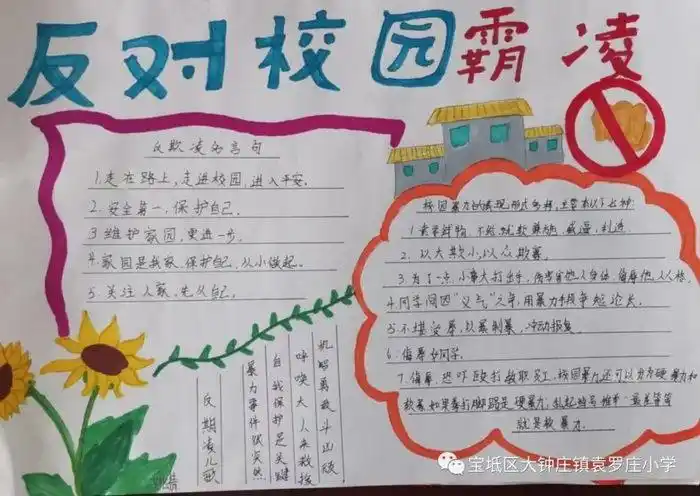 反对校园霸凌
反欺凌名言句
1.走在路上,走进校园,进入平安。
2.安全第一,保护自己。
3.维护家园,更进一步。
4.家园是我家,保护自己,从小做起。
5.关注人家,先从自己。
校园暴力的表现形式多样,主要有以下七种:
1.索要钱物,不给就 威逼
2.以大欺小,以众欺寡。
3.为了一点小事大打出手,伤害他人身体、侮辱他人人格。
4.同学间因“义气”之争,用暴力手段争起论长。
5.不堪受辱,以暴制暴,冲动报复。
6.侮辱女同学。
7.侮辱、恐吓、殴打教职员工,校园暴力还可以分为硬暴力和
软暴,如果拳打脚踢是硬暴力,乱起绰号
就是软暴力。
机智勇敢斗凶顽
呼唤大人来救援
自我保护是关键
暴力事件似突然
反期凌儿歌
宝坻区大钟庄镇袁罗庄小学